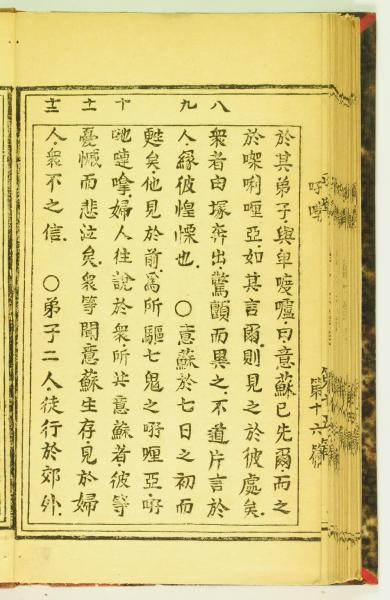 於其弟子與卑度嚧曰意蘇已先爾而之
於㗎唎哩亞如其言爾則見之於彼處矣
八 衆者由塚奔出驚顫而異之不道片言於
九 人緣彼惶慄也 〇意蘇於七日之初而
甦矣他見於前爲所驅七鬼之哩亞
十 嗱婦人往說於衆所共意蘇者彼等
十一 憂慽而悲泣矣衆等聞意蘇生存見於婦
十二 人衆不之信 〇弟子二人徒行於郊外
第十六篇